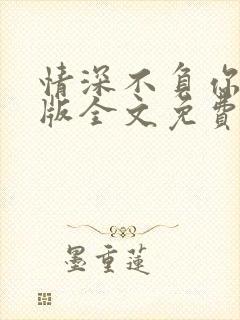 情深不負你
版全文免費
墨重蓮